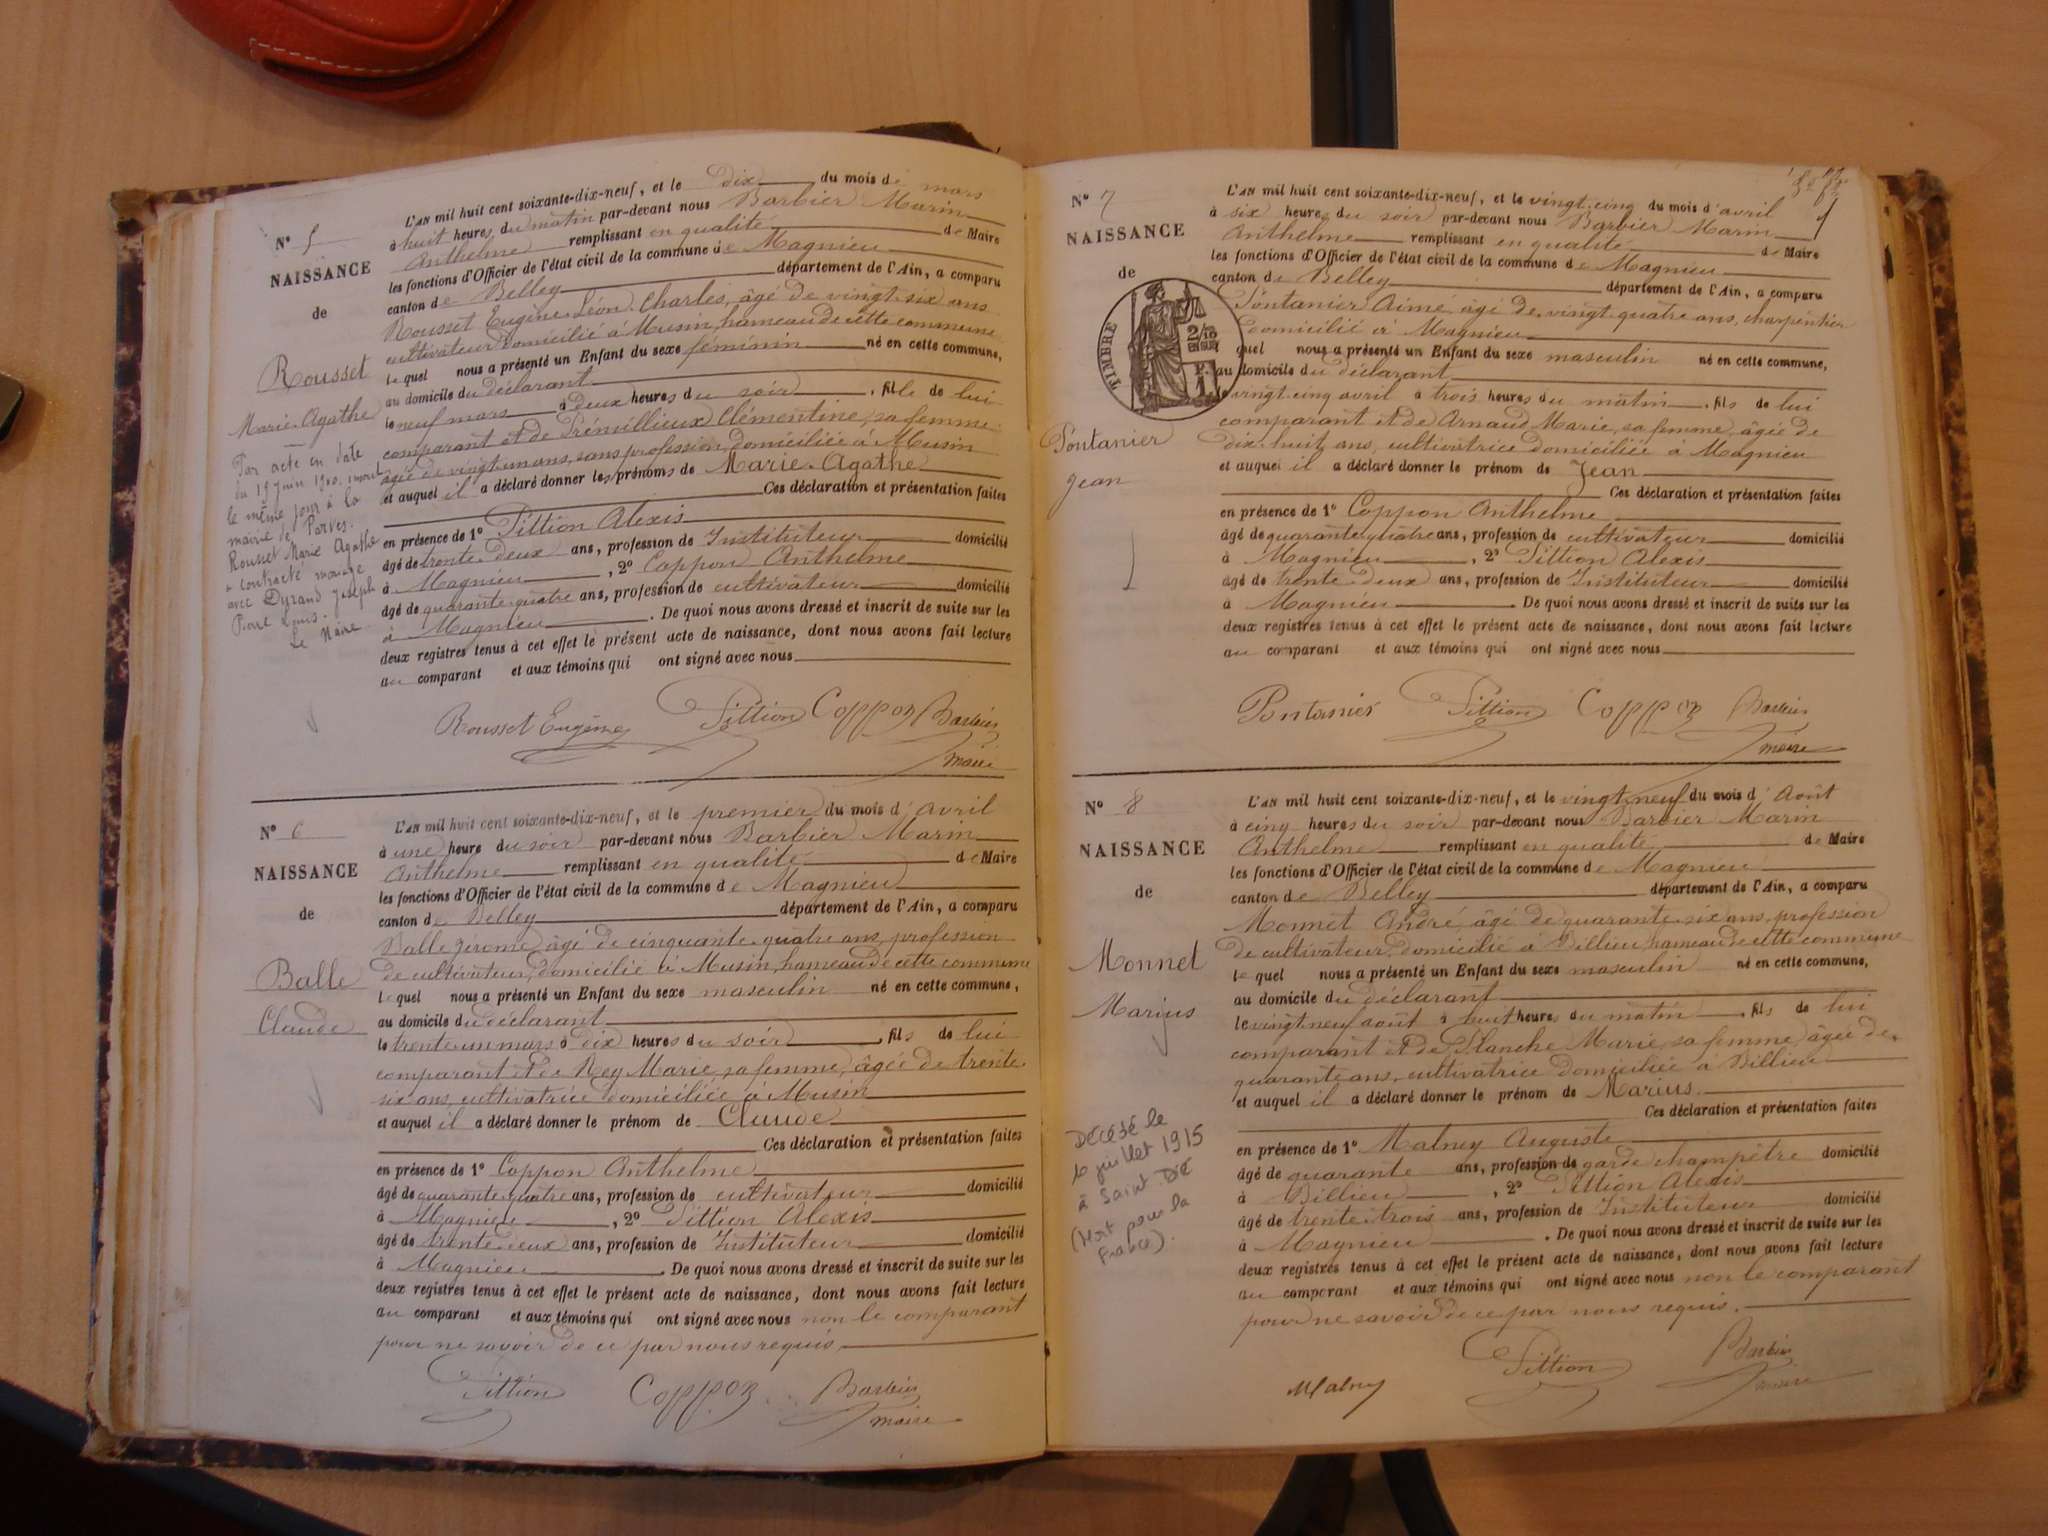 N° 5
NAISSANCE
de
Rousset
Marie-Agathe
Par acte en date
du 19 juin 1900, inscrit
le même jour à la
mairie de Parves.
Rousset Marie Agathe
a contracté mariage
avec Durand Joseph
Pierre Louis.
Le Maire
L'AN mil huit cent soixante-dix-neuf, et le dix du mois de mars
à huit heures du matin par-devant nous Barbier Marin
Anthelme remplissant en qualité de Maire
les fonctions d'Officier de l'état civil de la commune de Magnieu
canton de Belley département de l'Ain, a comparu
Rousset Eugène Léon Charles, âgé de vingt-six ans
cultivateur domicilié à Musin, hameau de cette commune
lequel nous a présenté un Enfant du sexe féminin né en cette commune,
au domicile du déclarant
le neuf mars à deux heures du soir, fille de lui
comparant et de Trémillieux Clémentine, sa femme
âgée de vingt un ans, sans profession, domiciliée à Musin
et auquel il a déclaré donner les prénoms de Marie-Agathe
Ces déclaration et présentation faites
en présence de 1° Sittion Alexis
âgé de trente-deux ans, profession de Instituteur domicilié
à Magnieu, 2° Coppon Anthelme
âgé de quarante-quatre ans, profession de cultivateur domicilié
à Magnieu. De quoi nous avons dressé et inscrit de suite sur les
deux registres tenus à cet effet le présent acte de naissance, dont nous avons fait lecture
au comparant et aux témoins qui ont signé avec nous
Rousset Eugène Sittion Coppon Barbier
maire
N° 6
NAISSANCE
de
Balle
Claude
L'AN mil huit cent soixante-dix-neuf, et le premier du mois d'avril
à une heure du soir par-devant nous Barbier Marin
Anthelme remplissant en qualité de Maire
les fonctions d'Officier de l'état civil de la commune de Magnieu
canton de Belley département de l'Ain, a comparu
Balle Jerome, âgé de cinquante-quatre ans, profession
de cultivateur, domicilié à Musin, hameau de cette commune
lequel nous a présenté un Enfant du sexe masculin né en cette commune,
au domicile du déclarant
le trente-un mars à dix heures du soir, fils de lui
comparant et de Rey Marie, sa femme, âgée de trente-
six ans, cultivatrice domiciliée à Musin
et auquel il a déclaré donner le prénom de Claude
Ces déclaration et présentation faites
en présence de 1° Coppon Anthelme
âgé de quarante-quatre ans, profession de cultivateur domicilié
à Magnieu, 2° Sittion Alexis
âgé de trente-deux ans, profession de Instituteur domicilié
à Magnieu. De quoi nous avons dressé et inscrit de suite sur les
deux registres tenus à cet effet le présent acte de naissance, dont nous avons fait lecture
au comparant et aux témoins qui ont signé avec nous non le comparant
pour ne savoir de ce par nous requis.
Sittion Coppon Barbier
maire
N° 7
NAISSANCE
de
TIMBRE
2/10
EN SUS
Pontanier
Jean
L'AN mil huit cent soixante-dix-neuf, et le vingt-cinq du mois d'avril
à six heures du soir par-devant nous Barbier Marin
Anthelme remplissant en qualité de Maire
les fonctions d'Officier de l'état civil de la commune de Magnieu
canton de Belley département de l'Ain, a comparu
Pontanier Aimé, âgé de vingt-quatre ans, charpentier
domicilié à Magnieu
quel nous a présenté un Enfant du sexe masculin né en cette commune,
au domicile du déclarant
le vingt-cinq avril à trois heures du matin, fils de lui
comparant et de Arnaud Marie, sa femme, âgée de
dix-huit ans, cultivatrice domiciliée à Magnieu
et auquel il a déclaré donner le prénom de Jean
Ces déclaration et présentation faites
en présence de 1° Coppon Anthelme
âgé de quarante-quatre ans, profession de cultivateur domicilié
à Magnieu, 2° Sittion Alexis
âgé de trente-deux ans, profession de Instituteur domicilié
à Magnieu. De quoi nous avons dressé et inscrit de suite sur les
deux registres tenus à cet effet le présent acte de naissance, dont nous avons fait lecture
au comparant et aux témoins qui ont signé avec nous
Pontanier Sittion Coppon Barbier
maire
N° 8
NAISSANCE
de
Monnet
Marius
DÉCÉDÉ le
juillet 1915
à Saint DIÉ
(Mort pour la
France).
L'AN mil huit cent soixante-dix-neuf, et le vingt-neuf du mois d'Août
à cinq heures du soir par-devant nous Barbier Marin
Anthelme remplissant en qualité de Maire
les fonctions d'Officier de l'état civil de la commune de Magnieu
canton de Belley département de l'Ain, a comparu
Monnet André, âgé de quarante-six ans, profession
de cultivateur, domicilié à Billieu, hameau de cette commune
lequel nous a présenté un Enfant du sexe masculin né en cette commune,
au domicile du déclarant
le vingt-neuf août à huit heures du matin, fils de lui
comparant et de Planche Marie, sa femme, âgée de
quarante ans, cultivatrice domiciliée à Billieu
et auquel il a déclaré donner le prénom de Marius
Ces déclaration et présentation faites
en présence de 1° Malney Auguste
âgé de quarante ans, profession de garde champêtre domicilié
à Billieu, 2° Sittion Alexis
âgé de trente-trois ans, profession de Instituteur domicilié
à Magnieu. De quoi nous avons dressé et inscrit de suite sur les
deux registres tenus à cet effet le présent acte de naissance, dont nous avons fait lecture
au comparant et aux témoins qui ont signé avec nous non le comparant
pour ne savoir de ce par nous requis.
Malney Sittion Barbier
maire